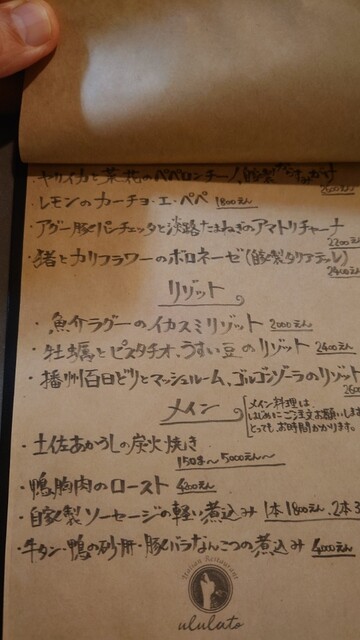 ・ヤリイカと菜花のペペロンチーノ
・レモンのカーチョ・エ・ペペ 1800えん
・アグー豚パンチェッタと淡路たまねぎのアマトリチャーナ
2200えん
・猪とカリフラワーのボロネーゼ(自家製タリアテッレ)
2400えん
リゾット
・魚介ラグーのイカスミリゾット 2000えん
・牡蠣とピスタチオ、うすい豆のリゾット 2400えん
・播州百日どりとマッシュルーム、ゴルゴンゾーラのリゾット
メイン
メイン料理は
はじめにご注文お願いします
とっても お時間かかります。
・土佐あかうしの炭火焼き
150g〜 5000えん〜
・鴨胸肉のロースト 4200えん
・自家製ソーセージの軽い煮込み 1本 1800えん、2本
・牛タン・鴨の砂肝・豚バラなんこつの煮込み 4000えん
ululato